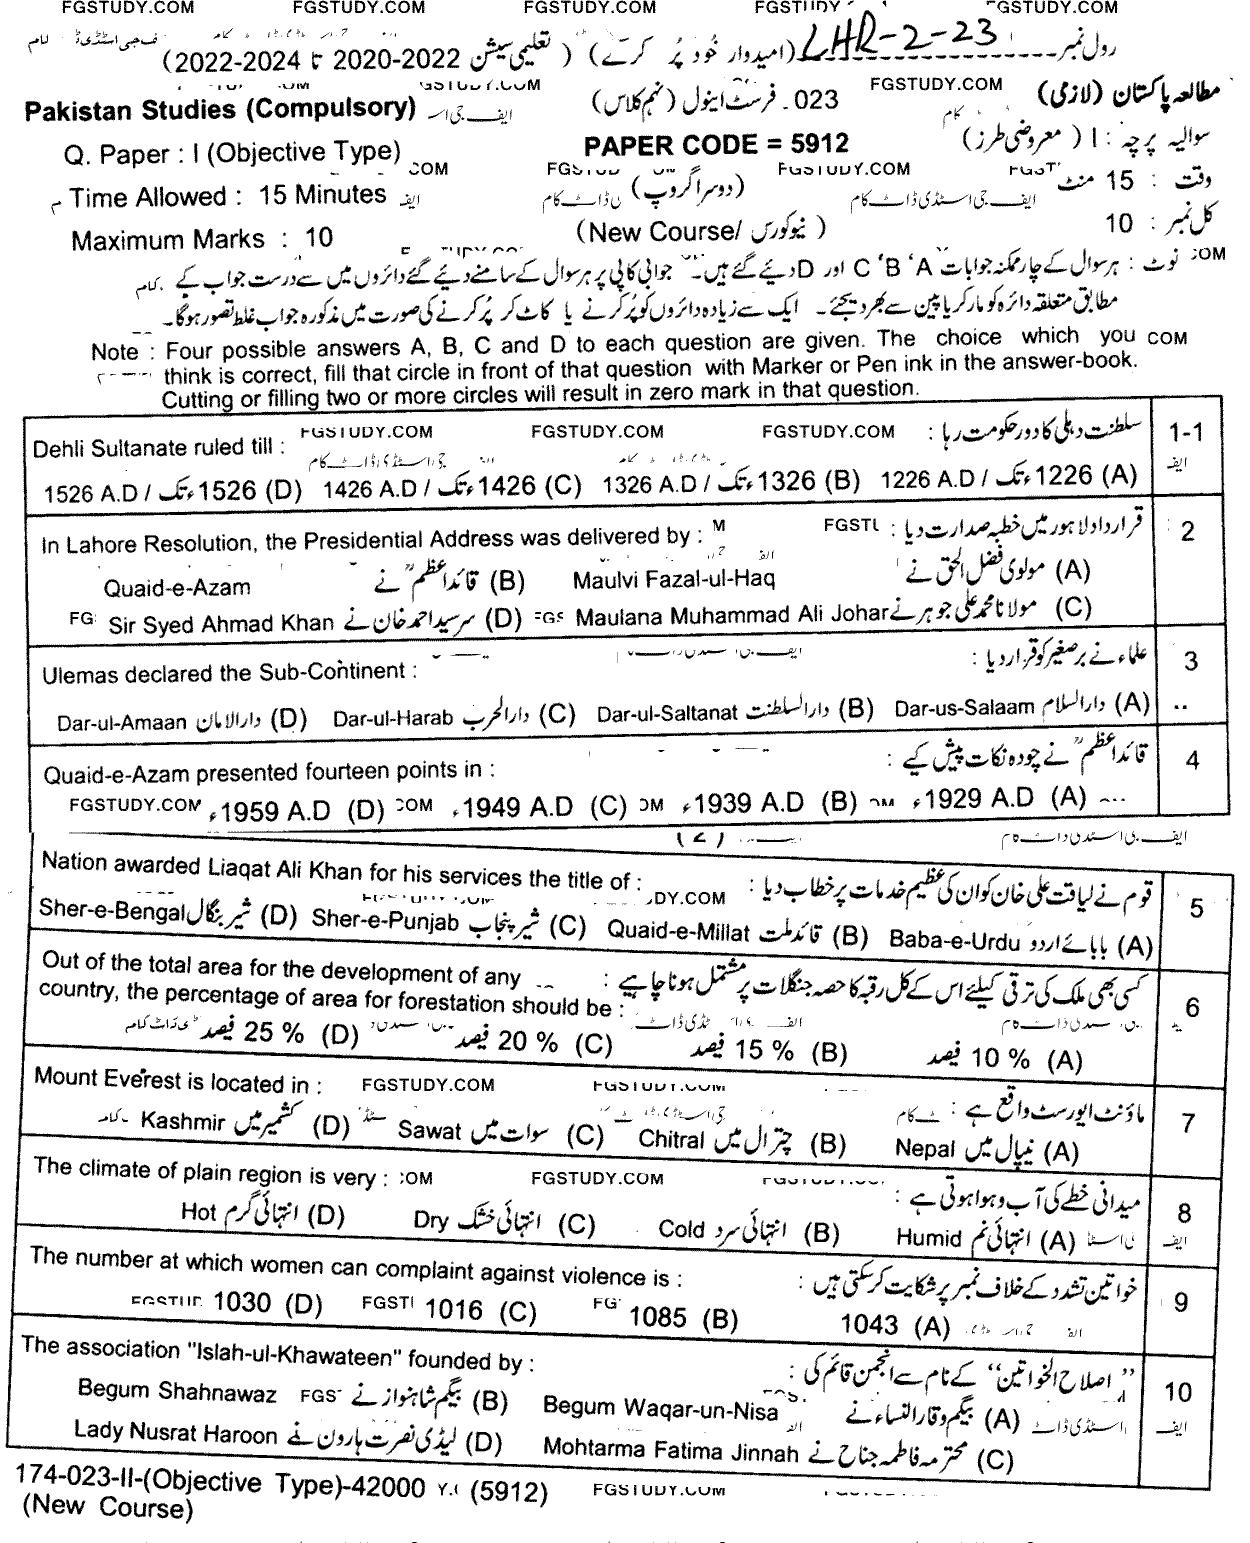 FGSTUDY.COM FGSTUDY.COM FGSTUDY.COM FGSTUDY.COM GSTUDY.COM
رول نمبر LHR-2-23 (امیدوار خود پُر کرے) (تعلیمی سیشن 2020-2022 تا 2022-2024)
FGSTUDY.COM
مطالعہ پاکستان (لازمی) 023۔ فرسٹ اینول (نہم کلاس) Pakistan Studies (Compulsory)
سوالیہ پرچہ : I (معروضی طرز) PAPER CODE = 5912 Q. Paper : I (Objective Type)
وقت : 15 منٹ (دوسرا گروپ) Time Allowed : 15 Minutes
کل نمبر : 10 (New Course/ نیو کورس) Maximum Marks : 10
نوٹ : ہر سوال کے چار ممکنہ جوابات A ،B ،C اور D دئیے گئے ہیں۔ جوابی کاپی پر ہر سوال کے سامنے دئیے گئے دائروں میں سے درست جواب کے
مطابق متعلقہ دائرہ کو مارکر یا پین سے بھر دیجئے۔ ایک سے زیادہ دائروں کو پُر کرنے یا کاٹ کر پُر کرنے کی صورت میں مذکورہ جواب غلط تصور ہوگا۔
Note : Four possible answers A, B, C and D to each question are given. The choice which you
think is correct, fill that circle in front of that question with Marker or Pen ink in the answer-book.
Cutting or filling two or more circles will result in zero mark in that question.
1-1 سلطنت دہلی کا دور حکومت رہا : Dehli Sultanate ruled till :
FGSTUDY.COM FGSTUDY.COM FGSTUDY.COM
(A) 1226ء تک / 1226 A.D (B) 1326ء تک / 1326 A.D (C) 1426ء تک / 1426 A.D (D) 1526ء تک / 1526 A.D
2 قرارداد لاہور میں خطبہ صدارت دیا : In Lahore Resolution, the Presidential Address was delivered by :
(A) مولوی فضل الحق نے Maulvi Fazal-ul-Haq (B) قائداعظمؒ نے Quaid-e-Azam
(C) مولانا محمد علی جوہر نے Maulana Muhammad Ali Johar (D) سرسید احمد خان نے Sir Syed Ahmad Khan
3 علماء نے برصغیر کو قرار دیا : Ulemas declared the Sub-Continent :
(A) دارالسلام Dar-us-Salaam (B) دارالسلطنت Dar-ul-Saltanat (C) دارالحرب Dar-ul-Harab (D) دارالامان Dar-ul-Amaan
4 قائداعظمؒ نے چودہ نکات پیش کیے : Quaid-e-Azam presented fourteen points in :
(A) 1929 A.D ء (B) 1939 A.D ء (C) 1949 A.D ء (D) 1959 A.D ء FGSTUDY.COM
(2)
5 قوم نے لیاقت علی خان کو ان کی عظیم خدمات پر خطاب دیا : Nation awarded Liaqat Ali Khan for his services the title of :
(A) بابائے اردو Baba-e-Urdu (B) قائد ملت Quaid-e-Millat (C) شیر پنجاب Sher-e-Punjab (D) شیر بنگال Sher-e-Bengal
6 کسی بھی ملک کی ترقی کیلئے اس کے کل رقبہ کا حصہ جنگلات پر مشتمل ہونا چاہیے : Out of the total area for the development of any
country, the percentage of area for forestation should be :
(A) 10 % فیصد (B) 15 % فیصد (C) 20 % فیصد (D) 25 % فیصد
7 ماؤنٹ ایورسٹ واقع ہے : Mount Everest is located in : FGSTUDY.COM
(A) نیپال میں Nepal (B) چترال میں Chitral (C) سوات میں Sawat (D) کشمیر میں Kashmir
8 میدانی خطے کی آب و ہوا ہوتی ہے : The climate of plain region is very : FGSTUDY.COM
(A) انتہائی نم Humid (B) انتہائی سرد Cold (C) انتہائی خشک Dry (D) انتہائی گرم Hot
9 خواتین تشدد کے خلاف نمبر پر شکایت کرسکتی ہیں : The number at which women can complaint against violence is :
(A) 1043 (B) 1085 (C) 1016 (D) 1030
10 "اصلاح الخواتین" کے نام سے انجمن قائم کی : The association "Islah-ul-Khawateen" founded by :
(A) بیگم وقار النساء نے Begum Waqar-un-Nisa (B) بیگم شاہنواز نے Begum Shahnawaz
(C) محترمہ فاطمہ جناح نے Mohtarma Fatima Jinnah (D) لیڈی نصرت ہارون نے Lady Nusrat Haroon
174-023-II-(Objective Type)-42000 (5912) FGSTUDY.COM
(New Course)